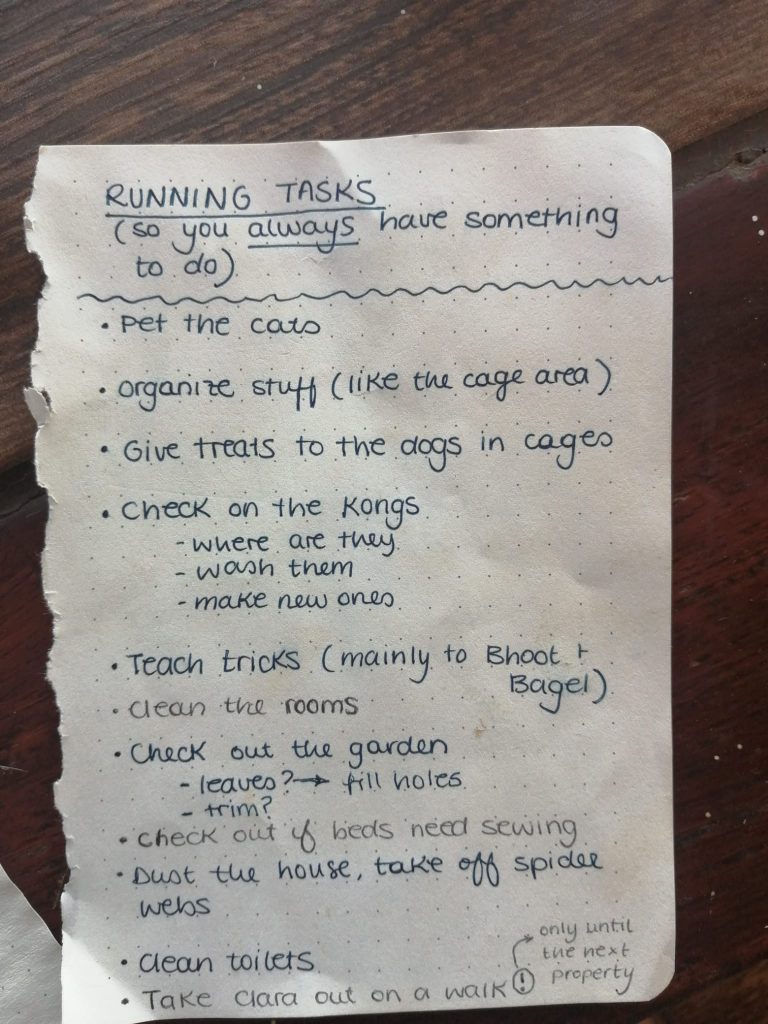 RUNNING TASKS
(so you always have something
to do)
• Pet the cats
• organize stuff (like the cage area)
• Give treats to the dogs in cages
• Check on the Kongs
- where are they
- wash them
- make new ones
• Teach tricks (mainly to Bhoot +
Bagel)
• Clean the rooms
• Check out the garden
- leaves? → fill holes
- trim?
• Check out if beds need sewing
• Dust the house, take off spider
webs
• Clean toilets
• Take Clara out on a walk (!)
only until
the next
property